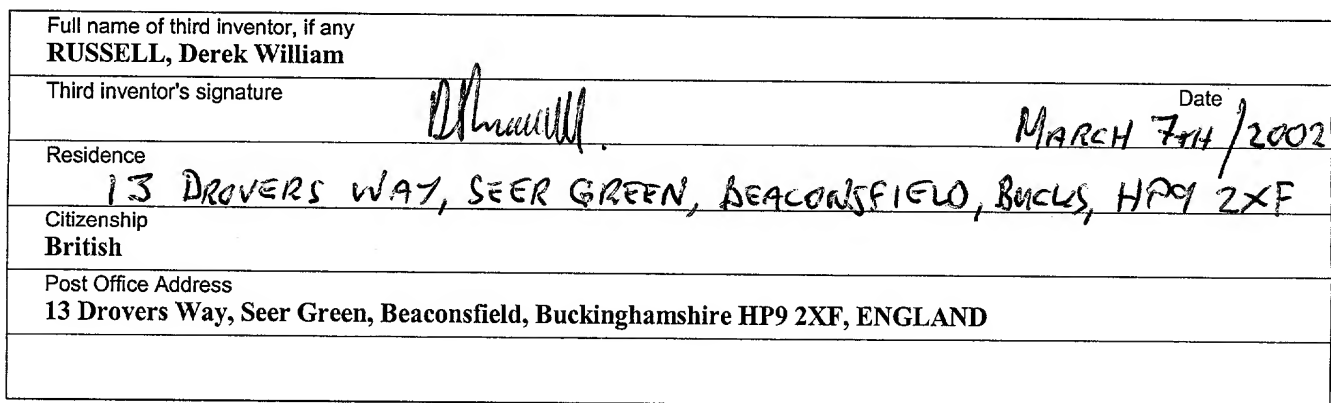 Full name of third inventor, if any
RUSSELL, Derek William
Third inventor's signature
Date
MARCH 7TH/2002
Residence
13 DROVERS WAY, SEER GREEN, BEACONSFIELD, BUCKS, HP9 2XF
Citizenship
British
Post Office Address
13 Drovers Way, Seer Green, Beaconsfield, Buckinghamshire HP9 2XF, ENGLAND